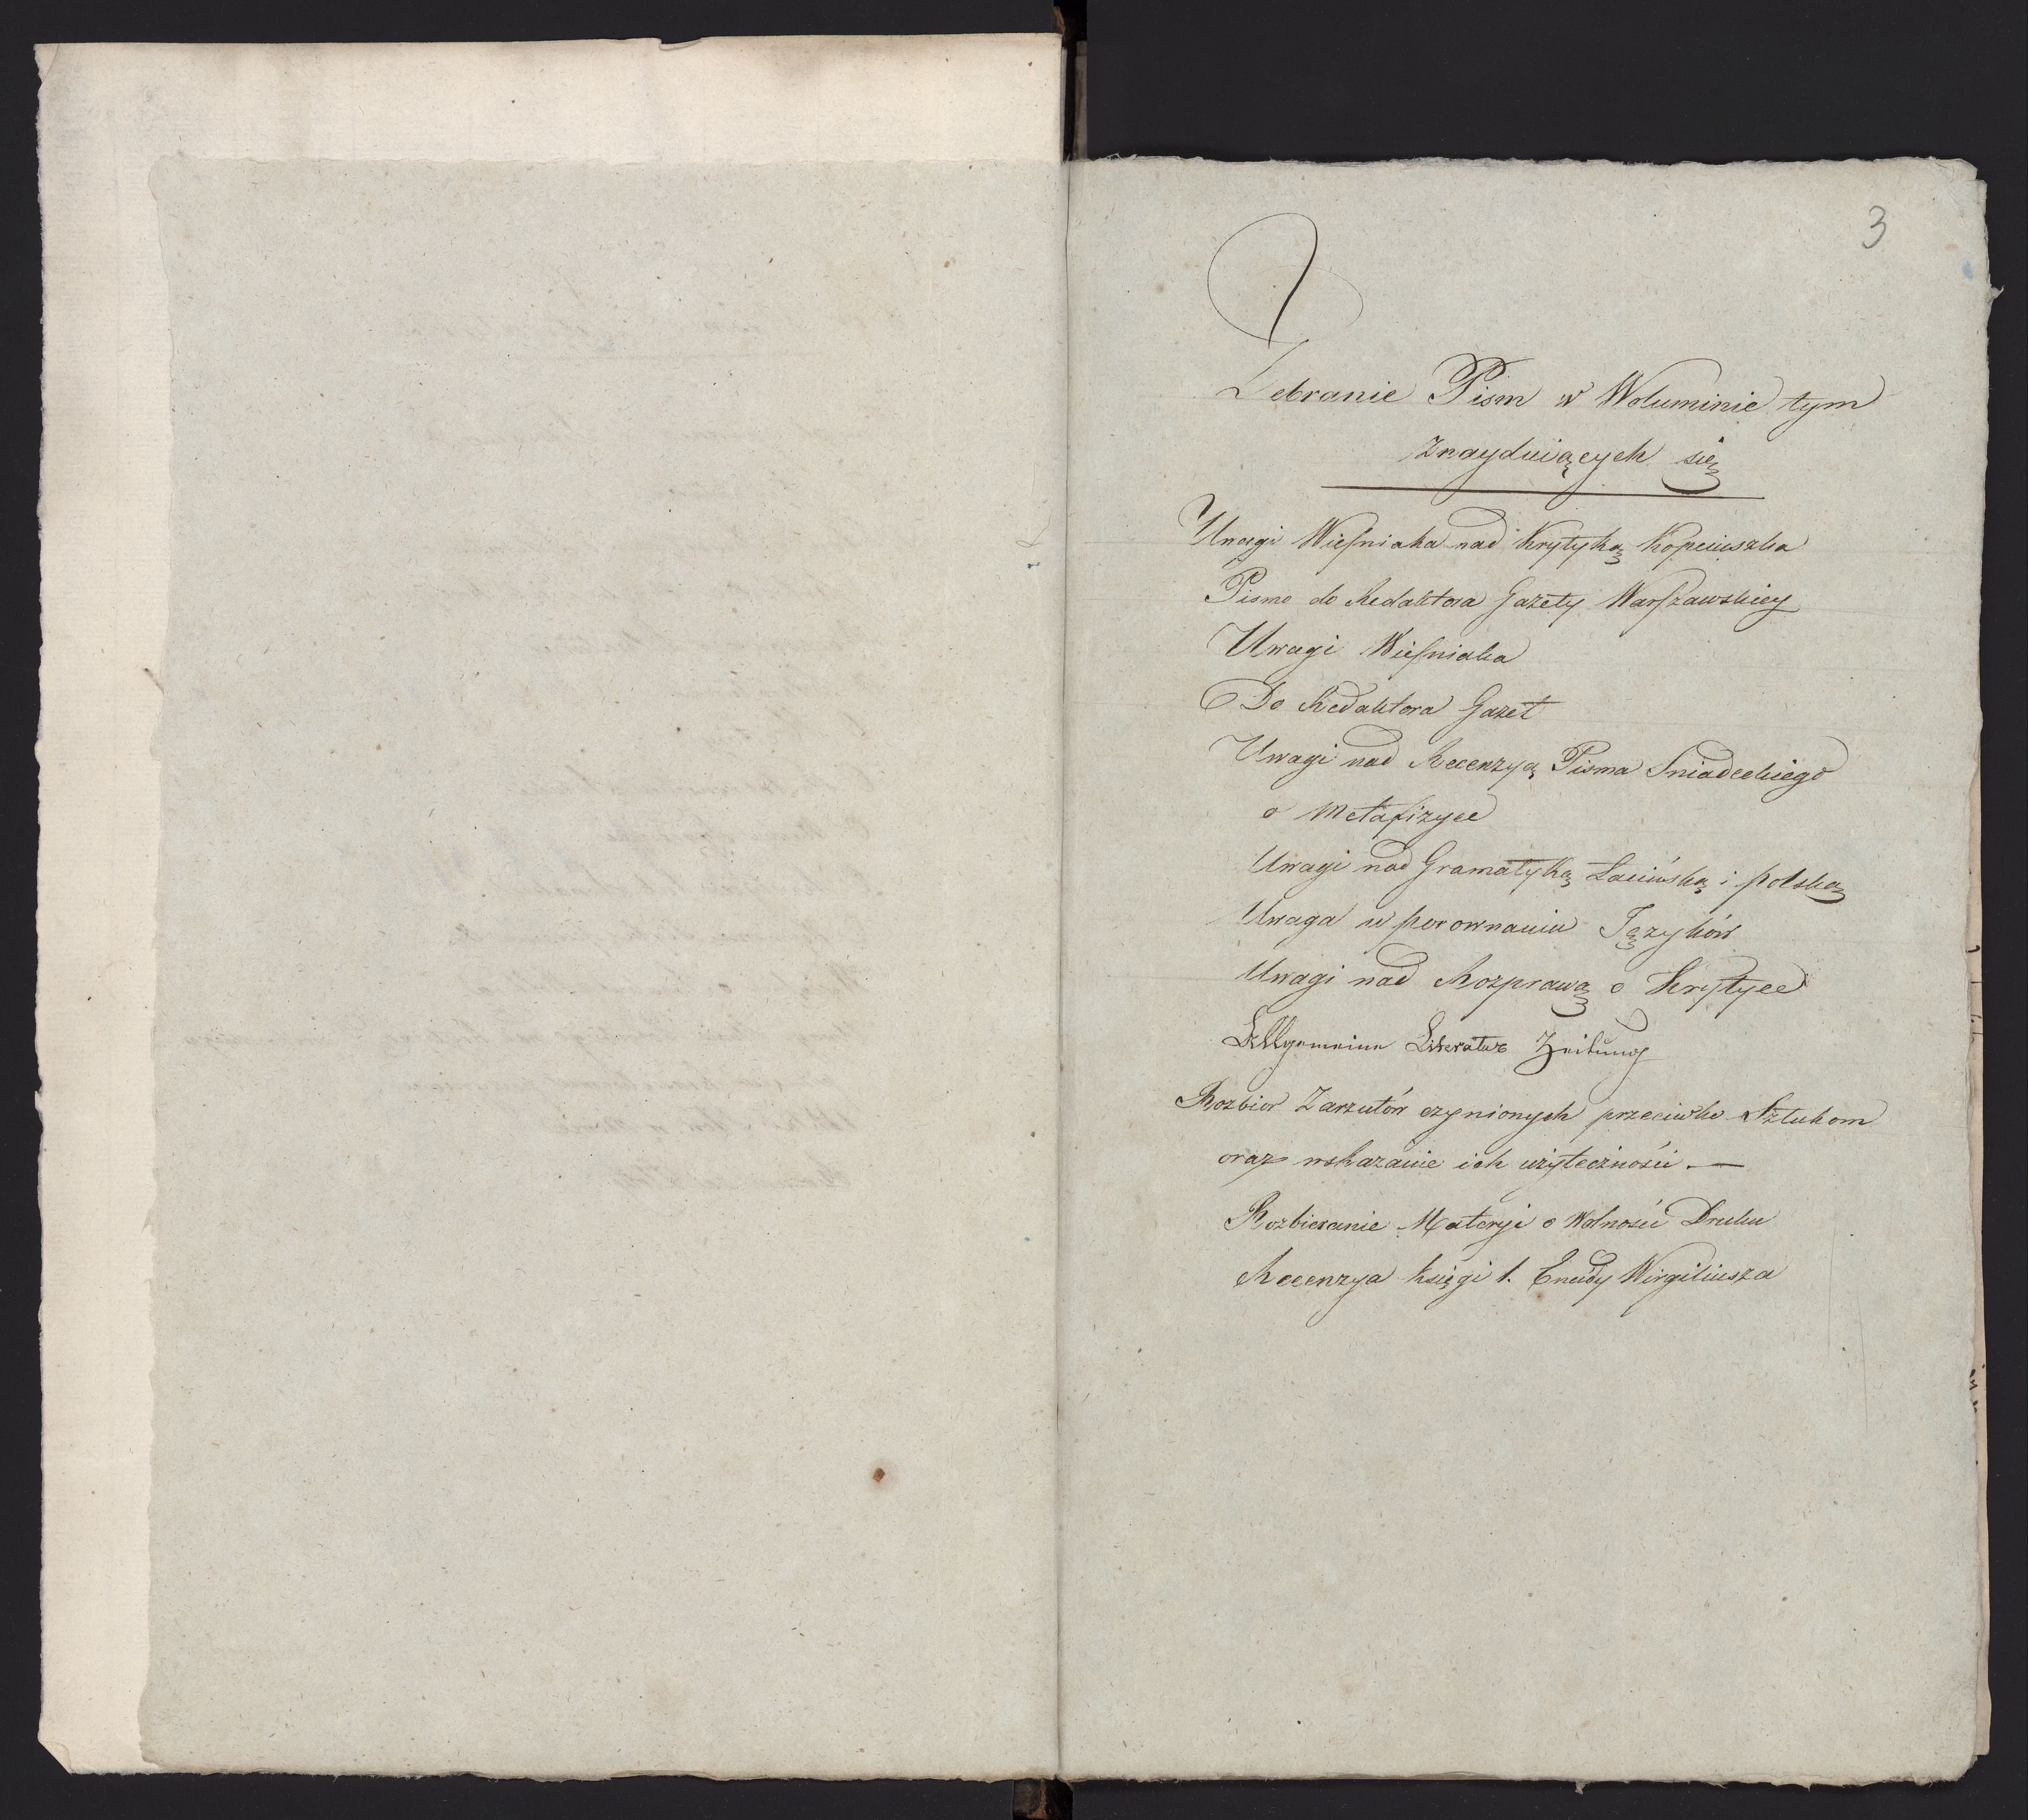 3
Zebranie Pism w Woluminie tym
znayduiących się
Uwagi Wieſniaka nad Krytyką Kopciuszka
Pismo do Redaktora Gazety Warſzawskiey
Uwagi Wieſniaka
Do Redaktora Gazet
Uwagi nad Recenzyą Pisma Sniadeckiego
o Metafizyce
Uwagi nad Gramatyką Łacińską i polską
Uwaga w porownaniu Języków
Uwagi nad Rozprawą o Krytyce
Allgemeine Literatur Zeitung
Rozbior Zarzutów czynionych przeciwko Sztukom
oraz wskazanie ich użyteczności. —
Rozbieranie Materyi o Wolności Druku
Recenzya księgi 1. Eneidy Wirgiliusza